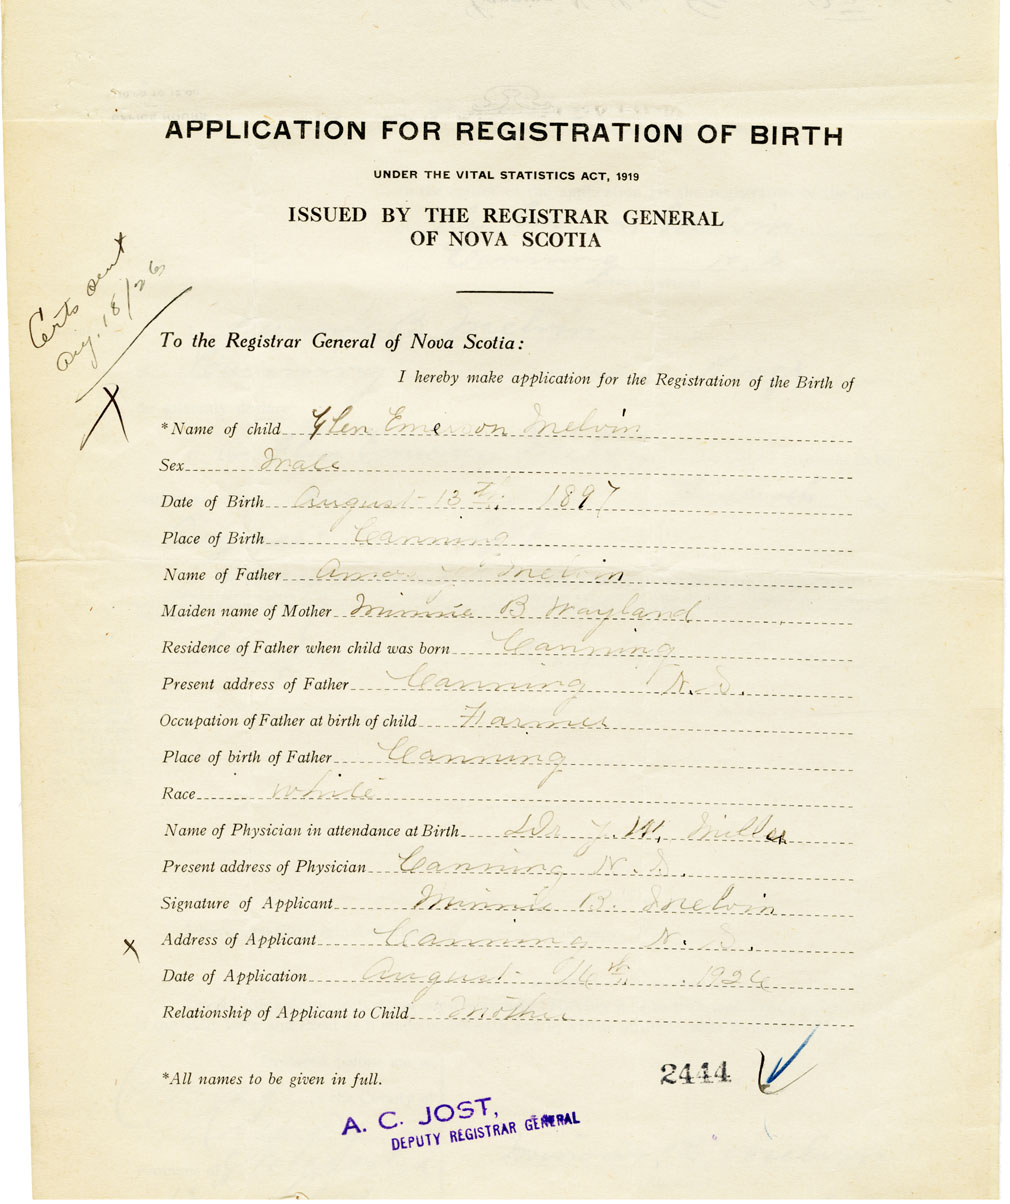 APPLICATION FOR REGISTRATION OF BIRTH
UNDER THE VITAL STATISTICS ACT, 1919
ISSUED BY THE REGISTRAR GENERAL
OF NOVA SCOTIA
Certs sent
Aug. 18/26
To the Registrar General of Nova Scotia:
I hereby make application for the Registration of the Birth of
*Name of child Glen Emerson Melvin
Sex Male
Date of Birth August 13th 1897
Place of Birth Canning
Name of Father Amos Melvin
Maiden name of Mother Minnie B Wayland
Residence of Father when child was born Canning
Present address of Father Canning N. S.
Occupation of Father at birth of child Farmer
Place of birth of Father Canning
Race White
Name of Physician in attendance at Birth Dr W. Miller
Present address of Physician Canning N. S.
Signature of Applicant Minnie B. Melvin
x Address of Applicant Canning N. S.
Date of Application August 16th 1926
Relationship of Applicant to Child Mother
*All names to be given in full.
2444
A. C. JOST,
DEPUTY REGISTRAR GENERAL